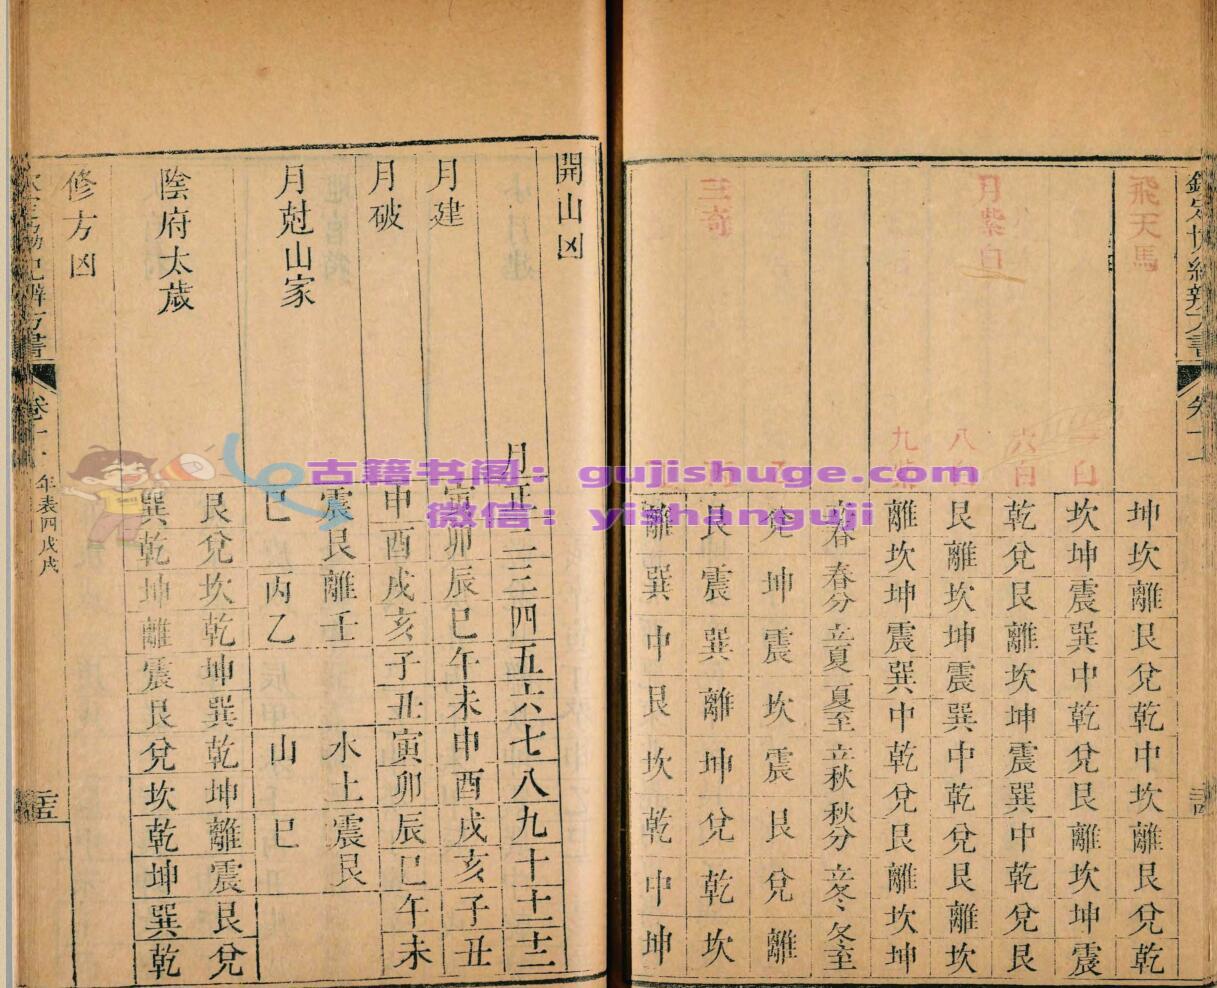 飛天馬 坤坎離艮兌乾中坎離艮兌乾
一白 坎坤震巽中乾兌艮離坎坤震
六白 乾兌艮離坎坤震巽中乾兌艮
月紫白
八 艮離坎坤震巽中乾兌艮離坎
九紫 離坎坤震巽中乾兌艮離坎坤
立春 春分 立夏 夏至 立秋 秋分 立冬 冬至
兌坤震坎震艮兌離
三奇
艮震巽離坤兌乾坎
離巽中艮坎乾中坤
開山凶
月 正二三四五六七八九十十一十二
月建 寅卯辰巳午未申酉戌亥子丑
月破 申酉戌亥子丑寅卯辰巳午未
月尅山家
震艮離壬 水土震艮
巳丙乙 山巳
陰府太歲
艮兌坎乾坤巽乾坤離震艮兌
巽乾坤離震艮兌坎乾坤巽乾
修方凶
年表四戊戌
古籍书阁：gujishuge.com
微信：yishanguji